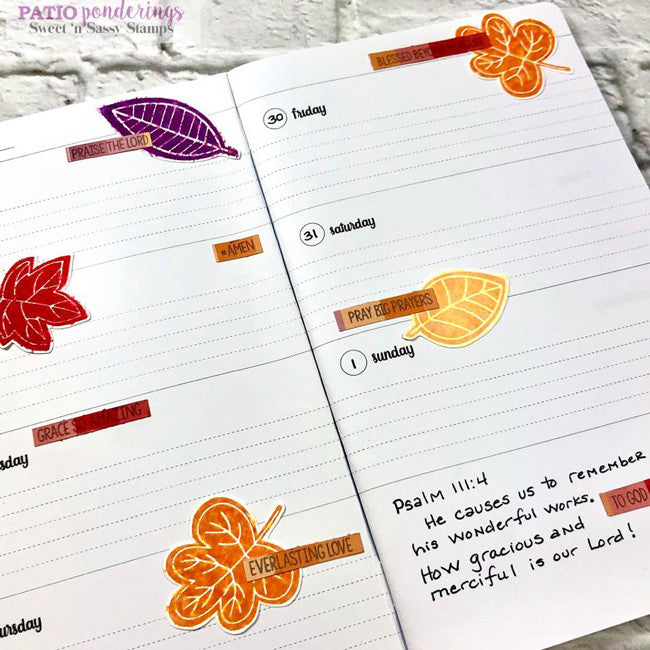 PATIO ponderings
Sweet 'n Sassy Stamps
PRAISE THE LORD
#AMEN
GRACE SO AMAZING
sday
EVERLASTING LOVE
ursday
BLESSED BEYOND
30 friday
31 saturday
PRAY BIG PRAYERS
1 sunday
Psalm 111:4
He causes us to remember
his wonderful works.
TO GOD
How gracious and
merciful is our Lord!